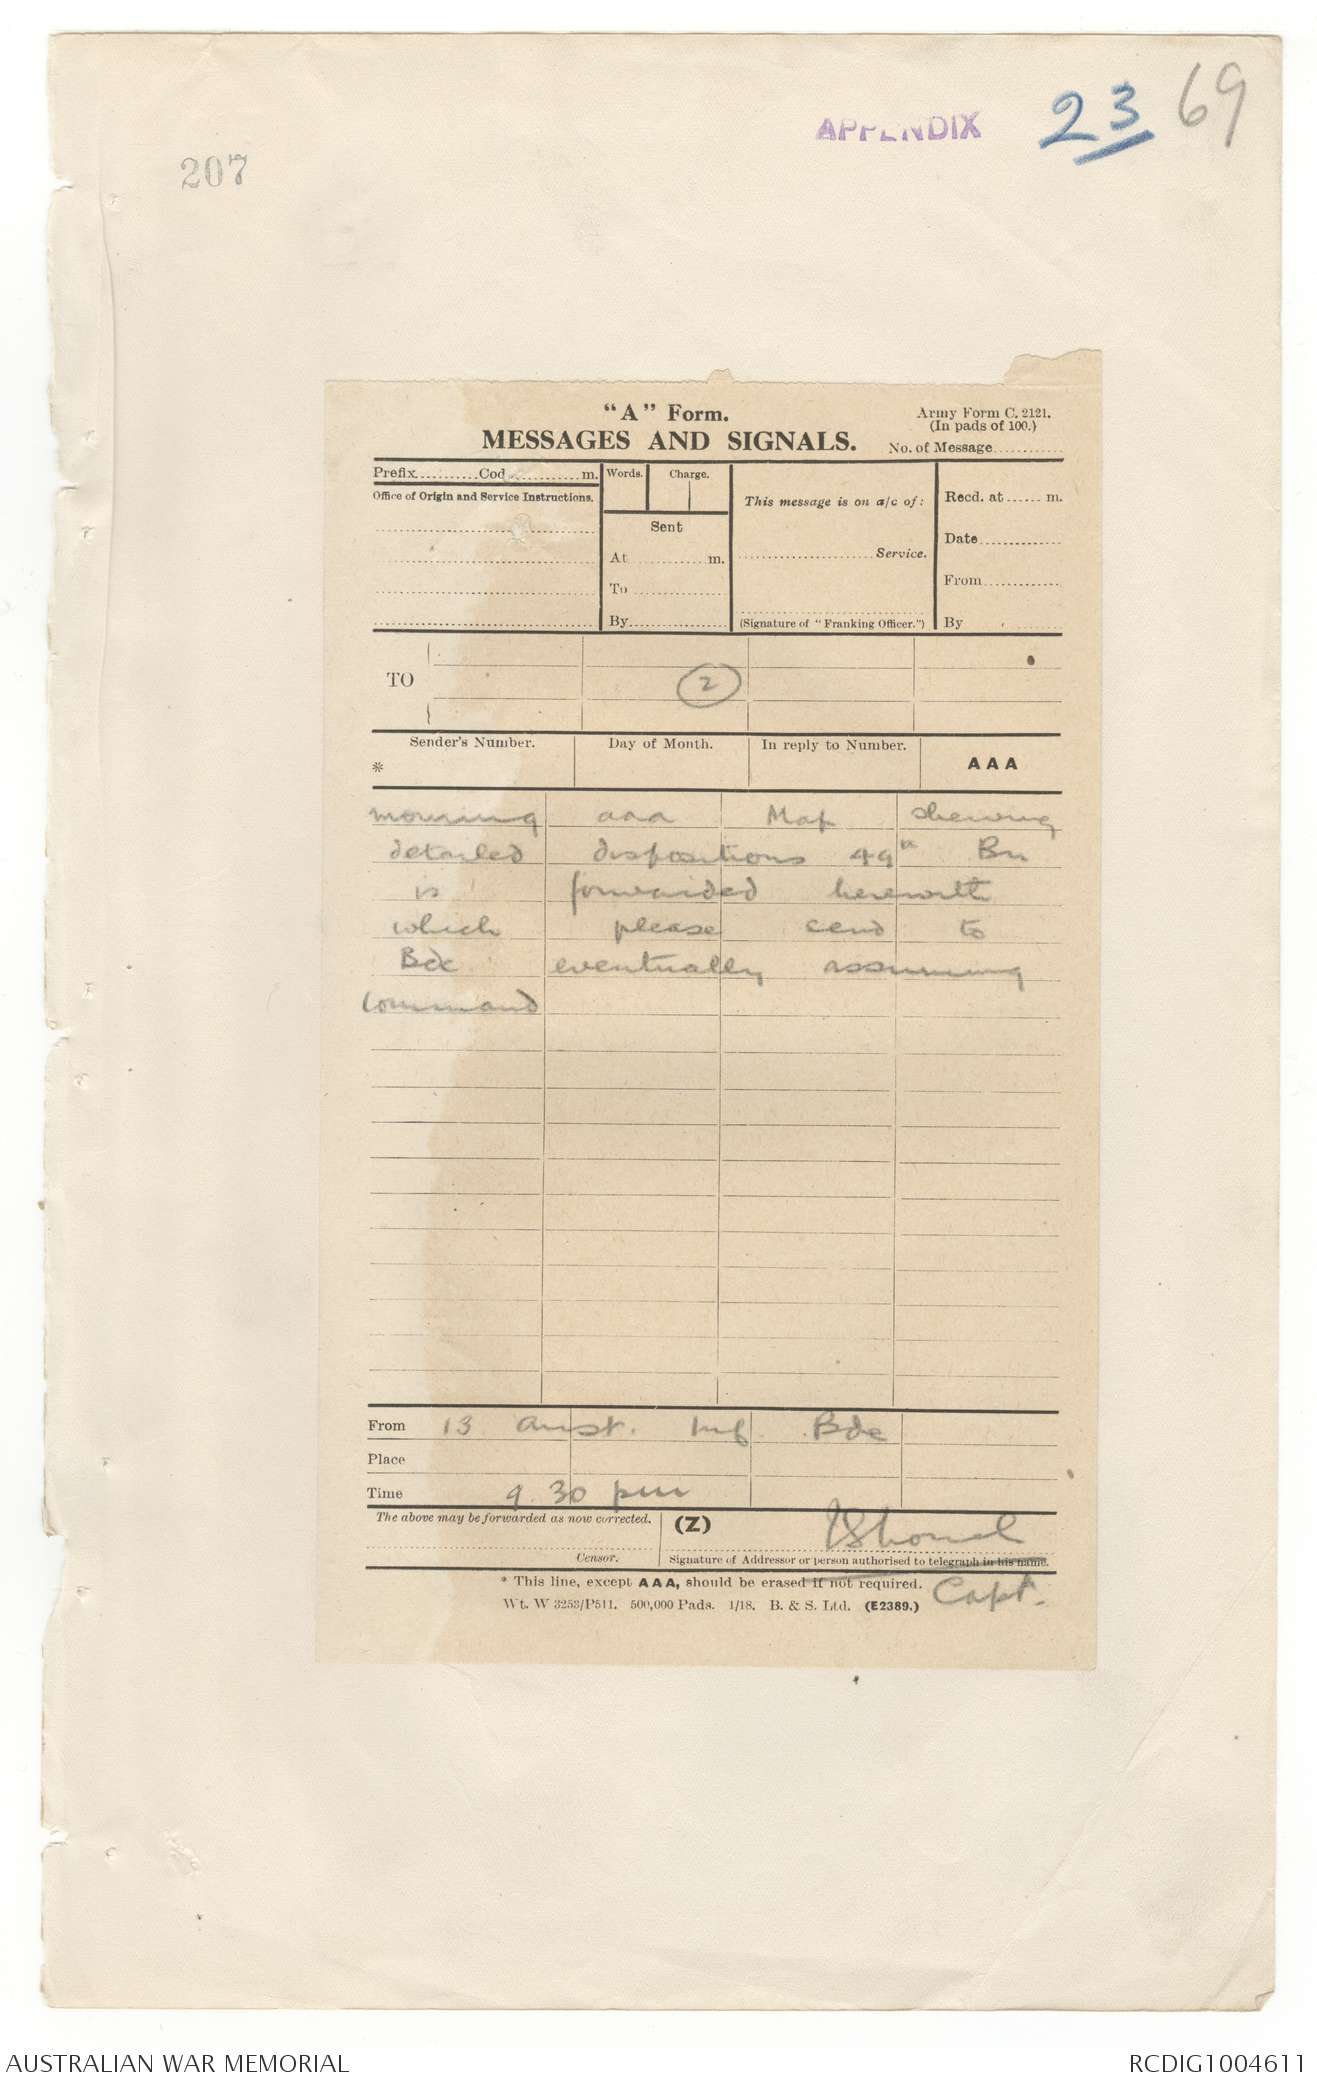 APPENDIX 23 69
207
"A" Form.
MESSAGES AND SIGNALS.
Army Form C. 2121.
(In pads of 100.)
No. of Message...........
Prefix...........Cod............m.
Office of Origin and Service Instructions.
Words. Charge.
Sent
At............m.
To..............
By...............
This message is on a/c of:
.....................Service.
(Signature of "Franking Officer.")
Recd. at...... m.
Date............
From............
By
TO
2
Sender's Number. Day of Month. In reply to Number. AAA
*
morning aaa Map shewing
detailed dispositions 49th Bn
is forwarded herewith
which please send to
Bde eventually assuming
command
From 13 Aust. Inf. Bde
Place
Time 9.30 pm
The above may be forwarded as now corrected. (Z)
Censor. Signature of Addressor or person authorised to telegraph in his name.
* This line, except AAA, should be erased if not required.
Capt.
Wt. W 3253/P511. 500,000 Pads. 1/18. B. & S. Ltd. (E2389.)
AUSTRALIAN WAR MEMORIAL RCDIG1004611